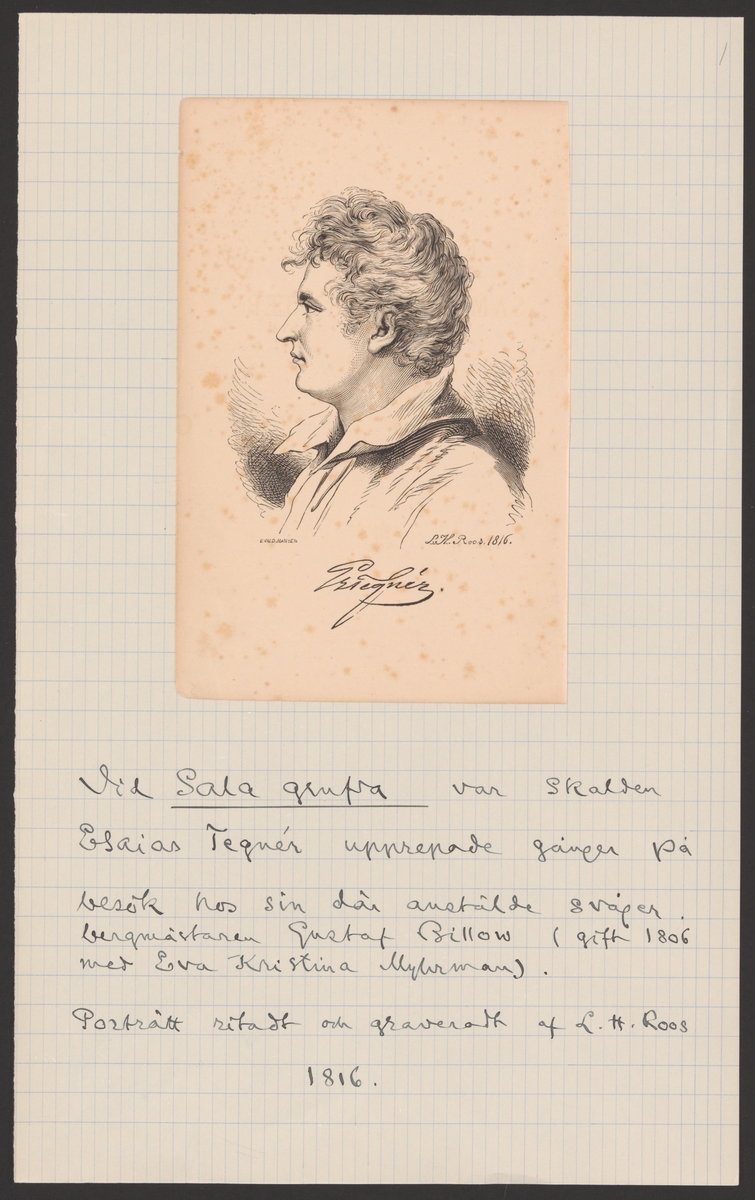 L.H. Roos. 1816.
Es Tegnér.
Vid Sala grufva var skalden
Esaias Tegnér upprepade gånger på
besök hos sin där anstälde svåger.
bergmästaren Gustaf Billow (gift 1806
med Eva Kristina Myhrman).
Porträtt ritadt och graveradt af L.H. Roos
1816.